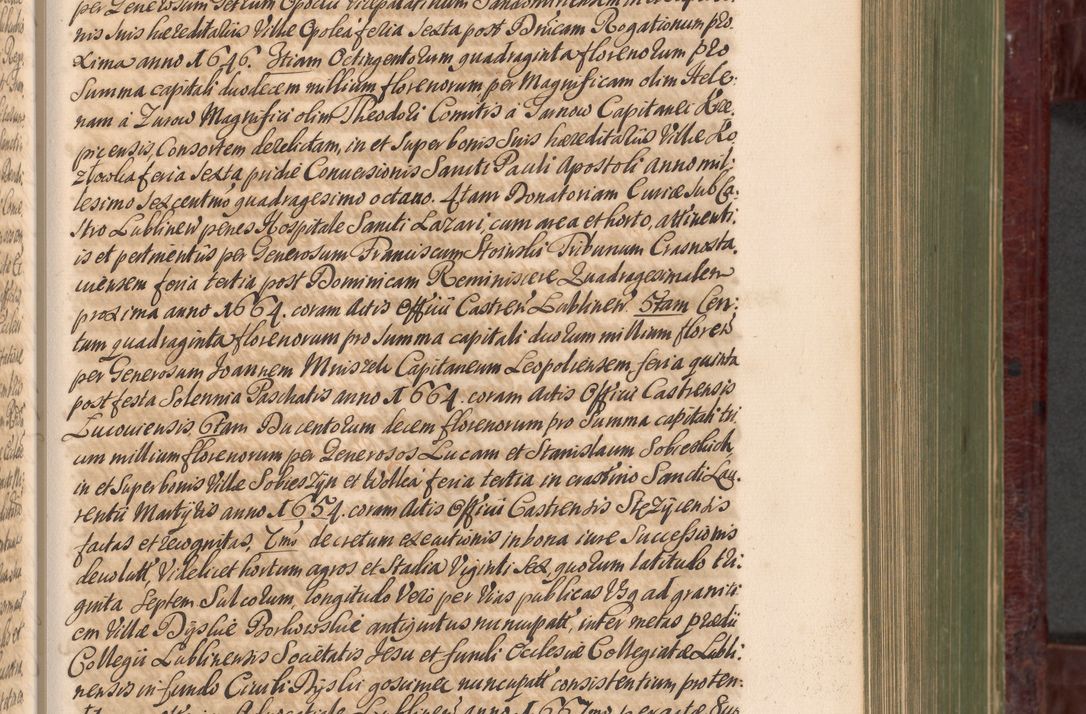 per Generosum Petrum Opocki Vicepalatinum Sandomiriensem in et super bo:
nis suis hæreditariis Villæ Opolea feria sexta post Dnicam Rogationum pro
xima anno 1646. 3tiam Octingentorum quadraginta florenorum pro
Summa capitali duodecem millium florenorum per Magnificam olim Hele:
nam à Zurow Magnifici olim Theodori Comitis à Tarnow Capitanei
picensis, Consortem derelictam, in et super bonis suis hæreditariis Villæ Ko
zlowka feria sexta pridie Conversionis Sancti Pauli Apostoli anno mil:
lesimo sexcentmo quadragesimo octavo. 4tam Donatoriam Curiæ sub Ca:
stro Lublinen penes Hospitale Sancti Lazari, cum area et horto, attinenti:
is et pertinentiis per Generosum Franciscum Stoinski Tribunum Crasnosta:
viensem feria tertia post Dominicam Reminiscere Quadragesimalem
proxima anno 1664. coram Actis Officii Castren Lublinen. 5tam Cen:
tum quadraginta florenorum pro summa capitali duorum millium floren
per Generosum Joannem Mniszek Capitaneum Leopoliensem, feria quinta
post festa Solennia Paschatis anno 1664. coram Actis Officii Castrensis
Lucoviensis. 6tam Ducentorum decem florenorum pro Summa capitali tri:
um millium florenorum per Generosos Lucam et Stanislaum Sobieskich,
in et super bonis Villæ Sobieszyn et Wollea feria tertia in crastino Sancti Lau:
rentii Martyris anno 1654. coram Actis Officii Castrensis Stezycensis
factas et recognitas. 7mo decretum executionis in bona iure Successionis
devoluta, Videlicet hortum agros et Stadia Viginti Sex, quorum latitudo tri:
ginta Septem Sulcorum, longitudo Vero per Vias publicas Usq ad graniti:
em Villæ Dyskie Borkowskie antiquitus nuncupatt, inter metas prædii
Collegii Lublinensis Societatis Jesu et fundi Ecclesiæ Collegiatæ Lubli:
nensis in fundo Civili Ryskie nuncupatt consistentium proten: